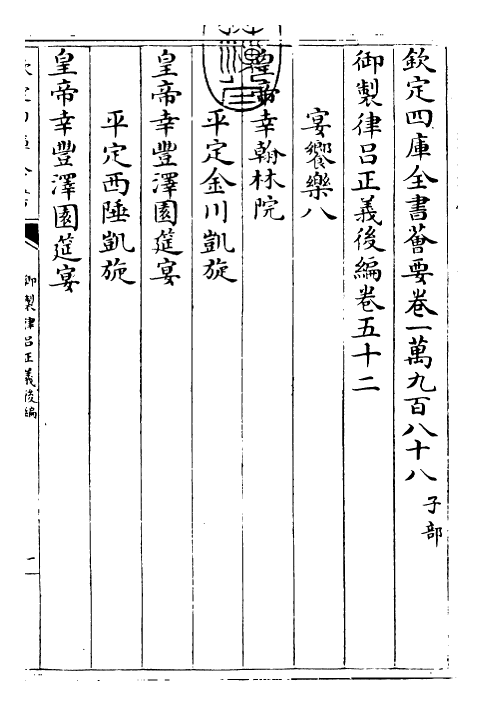 欽定四庫全書薈要卷一萬九百八十八 子部
御製律呂正義後編卷五十二
宴饗樂八
皇帝幸翰林院
平定金川凱旋
皇帝幸豐澤園筵宴
平定西陲凱旋
皇帝幸豐澤園筵宴
御製律呂正義後編
一